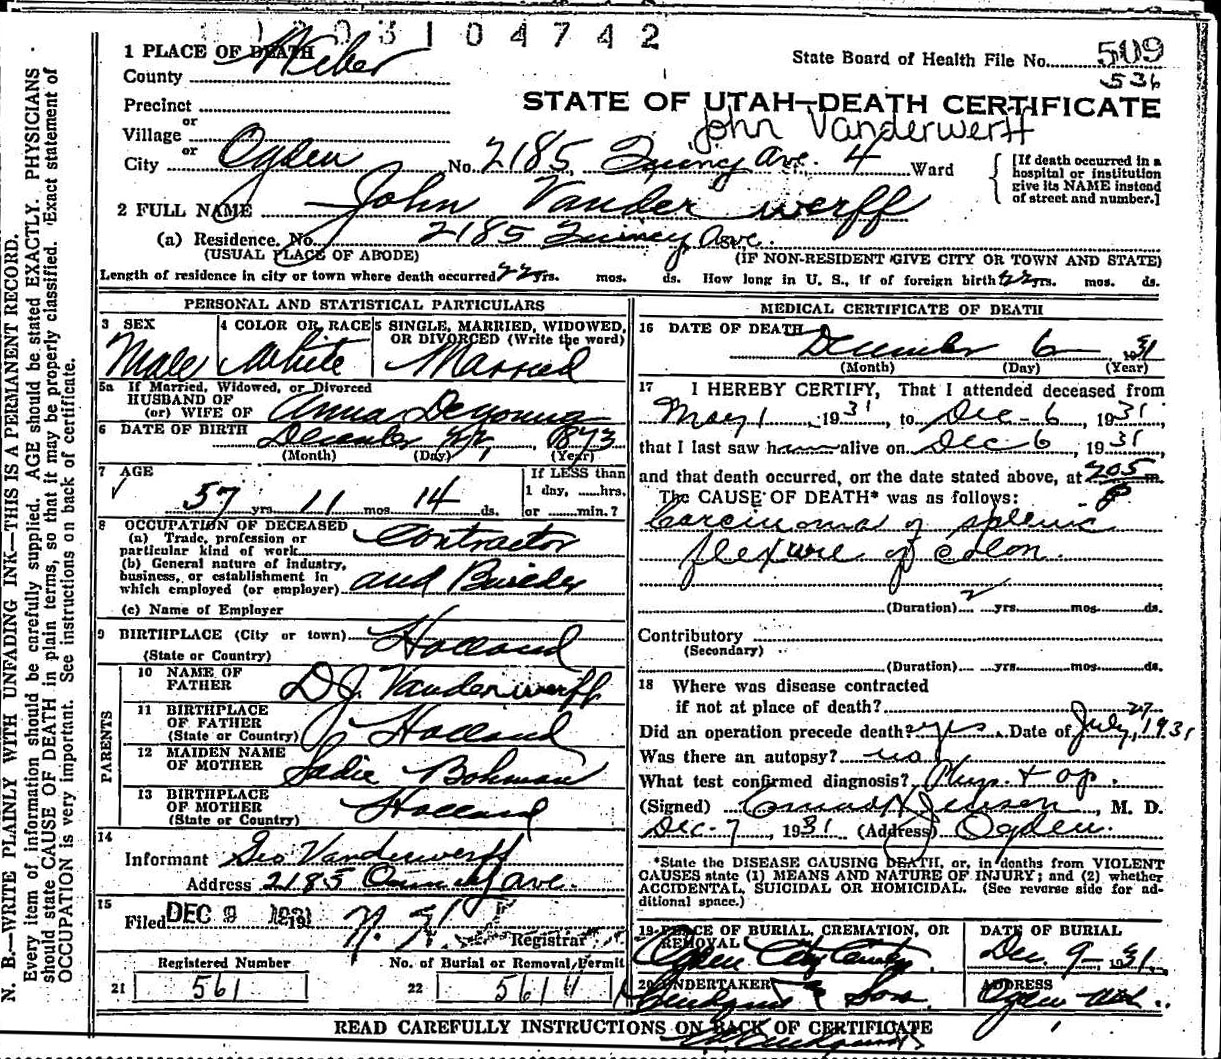 3 1 0 4 7 4 2
1 PLACE OF DEATH
County Weber
State Board of Health File No. 509
536
Precinct
or
Village
or
STATE OF UTAH—DEATH CERTIFICATE
John Vanderwerff
City Ogden No. 2185 Quincy Ave. 4 Ward
[If death occurred in a hospital or institution give its NAME instead of street and number.]
2 FULL NAME John Vander werff
(a) Residence. No. 2185 Quincy Ave.
(USUAL PLACE OF ABODE) (IF NON-RESIDENT GIVE CITY OR TOWN AND STATE)
Length of residence in city or town where death occurred 22 yrs. mos. ds. How long in U. S., if of foreign birth 22 yrs. mos. ds.
PERSONAL AND STATISTICAL PARTICULARS
3 SEX
Male
4 COLOR OR RACE
White
5 SINGLE, MARRIED, WIDOWED, OR DIVORCED (Write the word)
Married
5a If Married, Widowed, or Divorced
HUSBAND OF
(or) WIFE OF Anna DeYoung
6 DATE OF BIRTH December 22, 1873
(Month) (Day) (Year)
7 AGE
57 yrs 11 mos 14 ds.
If LESS than
1 day, ......hrs.
or ......min.?
8 OCCUPATION OF DECEASED
(a) Trade, profession or
particular kind of work Contractor
(b) General nature of industry,
business, or establishment in
which employed (or employer) and Builder
(c) Name of Employer
9 BIRTHPLACE (City or town) Holland
(State or Country)
PARENTS
10 NAME OF
FATHER D J. Vanderwerff
11 BIRTHPLACE
OF FATHER
(State or Country) Holland
12 MAIDEN NAME
OF MOTHER Sadie Bohman
13 BIRTHPLACE
OF MOTHER
(State or Country) Holland
14
Informant Geo Vanderwerff
Address 2185 Quincy Ave.
15
Filed DEC 9 1931
Registrar
Registered Number No. of Burial or Removal Permit
21 561 22 561
MEDICAL CERTIFICATE OF DEATH
16 DATE OF DEATH
December 6 1931
(Month) (Day) (Year)
17 I HEREBY CERTIFY, That I attended deceased from
May 1, 1931, to Dec-6, 1931
that I last saw h alive on Dec-6, 1931
and that death occurred, on the date stated above, at 705 P m.
The CAUSE OF DEATH* was as follows:
Carcinoma of splenic
flexure of colon.
(Duration) yrs. mos. ds.
Contributory
(Secondary)
(Duration) yrs. mos. ds.
18 Where was disease contracted
if not at place of death?
Did an operation precede death? yes Date of July 27, 1931
Was there an autopsy? no
What test confirmed diagnosis? Phys. + op.
(Signed) Jensen, M. D.
Dec-7, 1931 (Address) Ogden.
*State the DISEASE CAUSING DEATH, or, in deaths from VIOLENT
CAUSES state (1) MEANS AND NATURE OF INJURY; and (2) whether
ACCIDENTAL, SUICIDAL OR HOMICIDAL. (See reverse side for ad-
ditional space.)
19 PLACE OF BURIAL, CREMATION, OR
REMOVAL
Ogden City Cemetery.
DATE OF BURIAL
Dec. 9-, 1931
20 UNDERTAKER
& Sons
ADDRESS
Ogden Utah.
READ CAREFULLY INSTRUCTIONS ON BACK OF CERTIFICATE
N. B.—WRITE PLAINLY WITH UNFADING INK—THIS IS A PERMANENT RECORD.
Every item of information should be carefully supplied. AGE should be stated EXACTLY. PHYSICIANS
should state CAUSE OF DEATH in plain terms, so that it may be properly classified. Exact statement of
OCCUPATION is very important. See instructions on back of certificate.